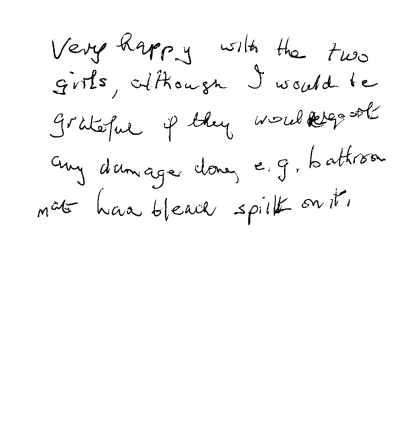 Very happy with the two
girls, although I would be
grateful if they would report
any damage done, e.g. bathroom
mat had bleach spilt on it.